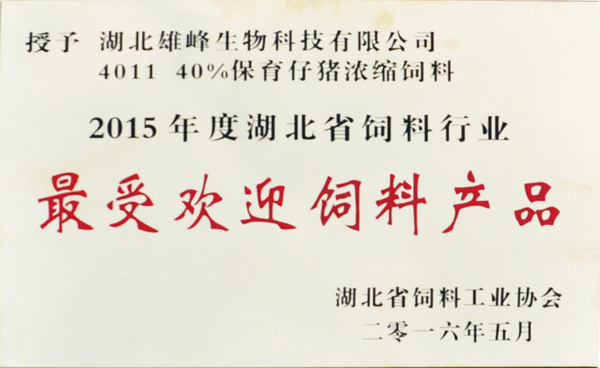 授予 湖北雄峰生物科技有限公司
4011 40%保育仔猪浓缩饲料
2015年度湖北省饲料行业
最受欢迎饲料产品
湖北省饲料工业协会
二零一六年五月